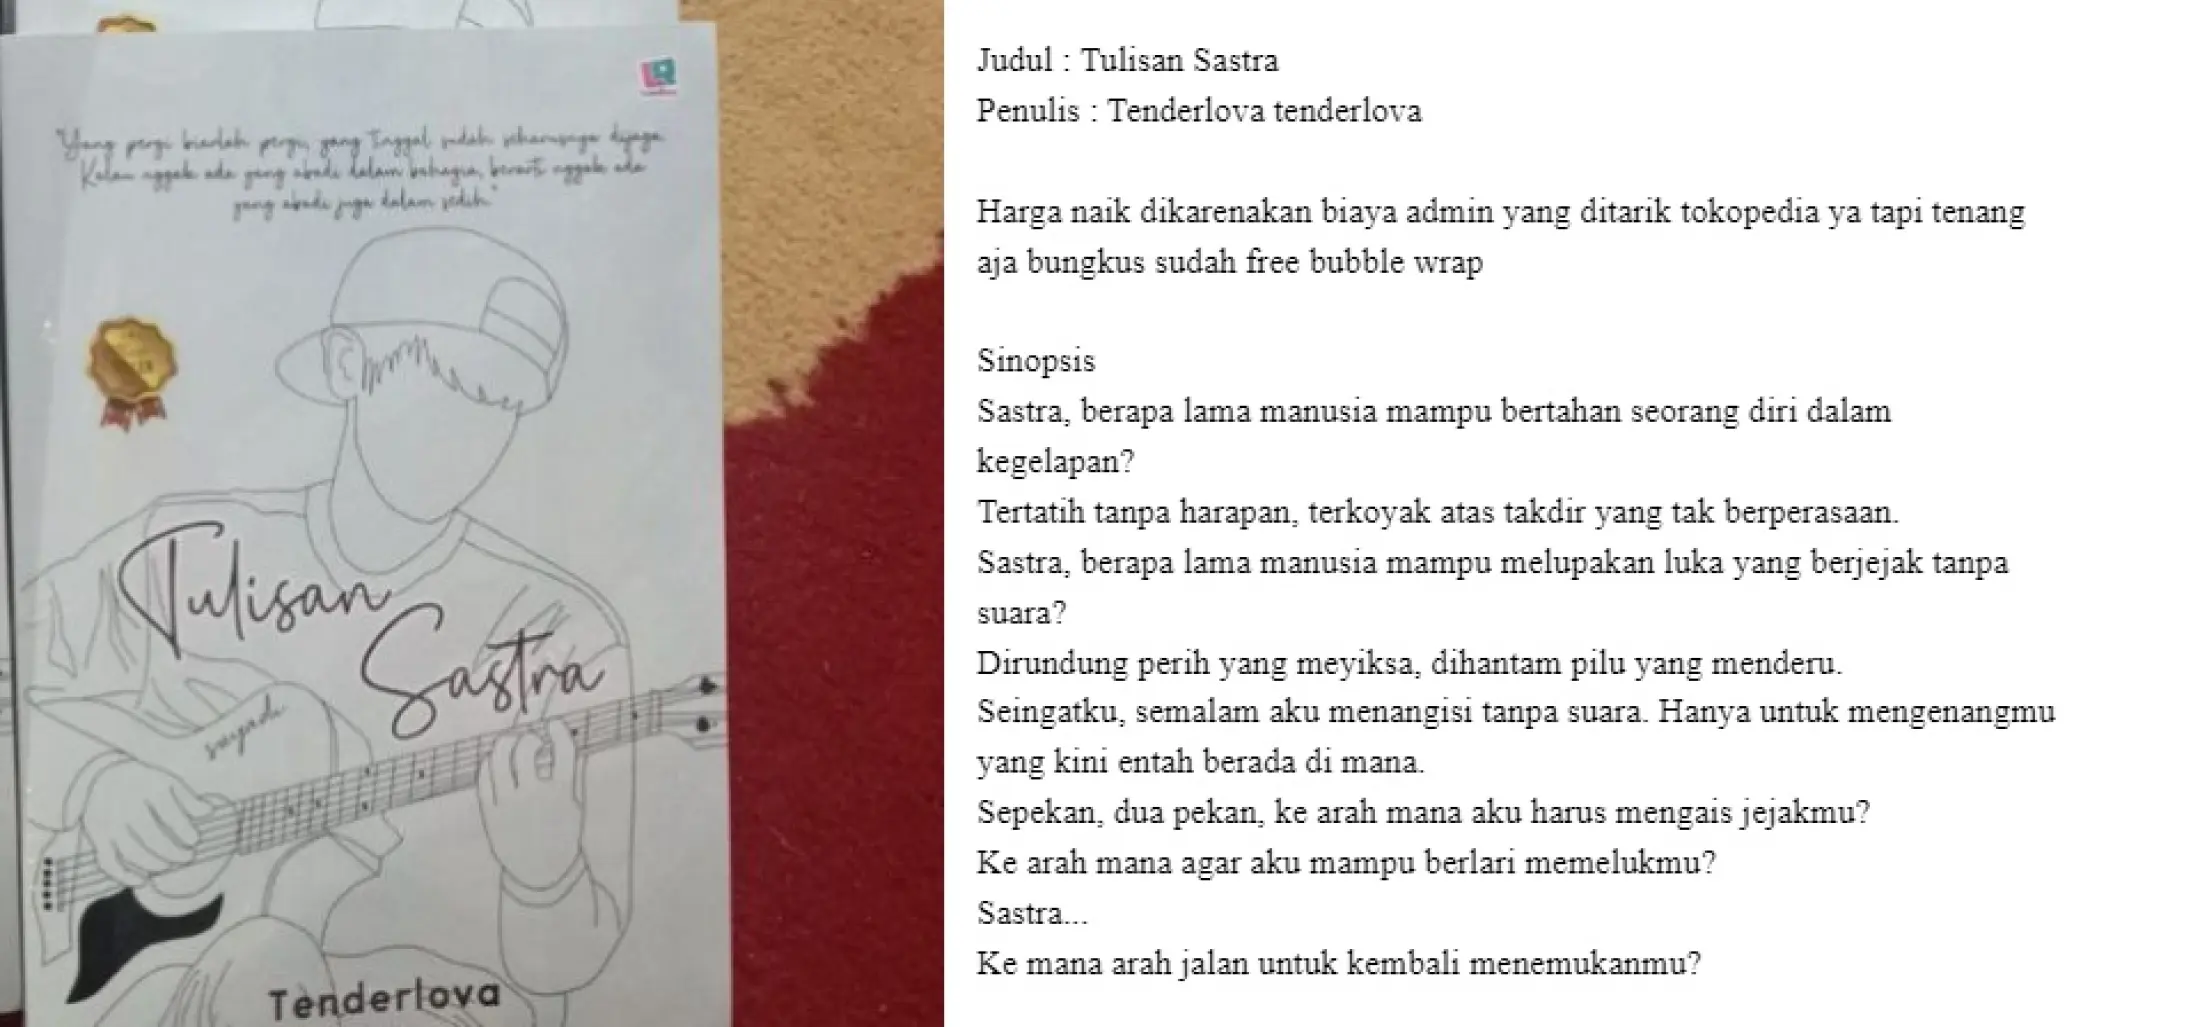 "Yang pergi biarlah pergi, yang tinggal sudah seharusnya dijaga
Kalau nggak ada yang abadi dalam bahagia, berarti nggak ada
yang abadi juga dalam sedih."
Tulisan
Sastra
Tenderlova
Judul : Tulisan Sastra
Penulis : Tenderlova tenderlova
Harga naik dikarenakan biaya admin yang ditarik tokopedia ya tapi tenang
aja bungkus sudah free bubble wrap
Sinopsis
Sastra, berapa lama manusia mampu bertahan seorang diri dalam
kegelapan?
Tertatih tanpa harapan, terkoyak atas takdir yang tak berperasaan.
Sastra, berapa lama manusia mampu melupakan luka yang berjejak tanpa
suara?
Dirundung perih yang meyiksa, dihantam pilu yang menderu.
Seingatku, semalam aku menangisi tanpa suara. Hanya untuk mengenangmu
yang kini entah berada di mana.
Sepekan, dua pekan, ke arah mana aku harus mengais jejakmu?
Ke arah mana agar aku mampu berlari memelukmu?
Sastra...
Ke mana arah jalan untuk kembali menemukanmu?